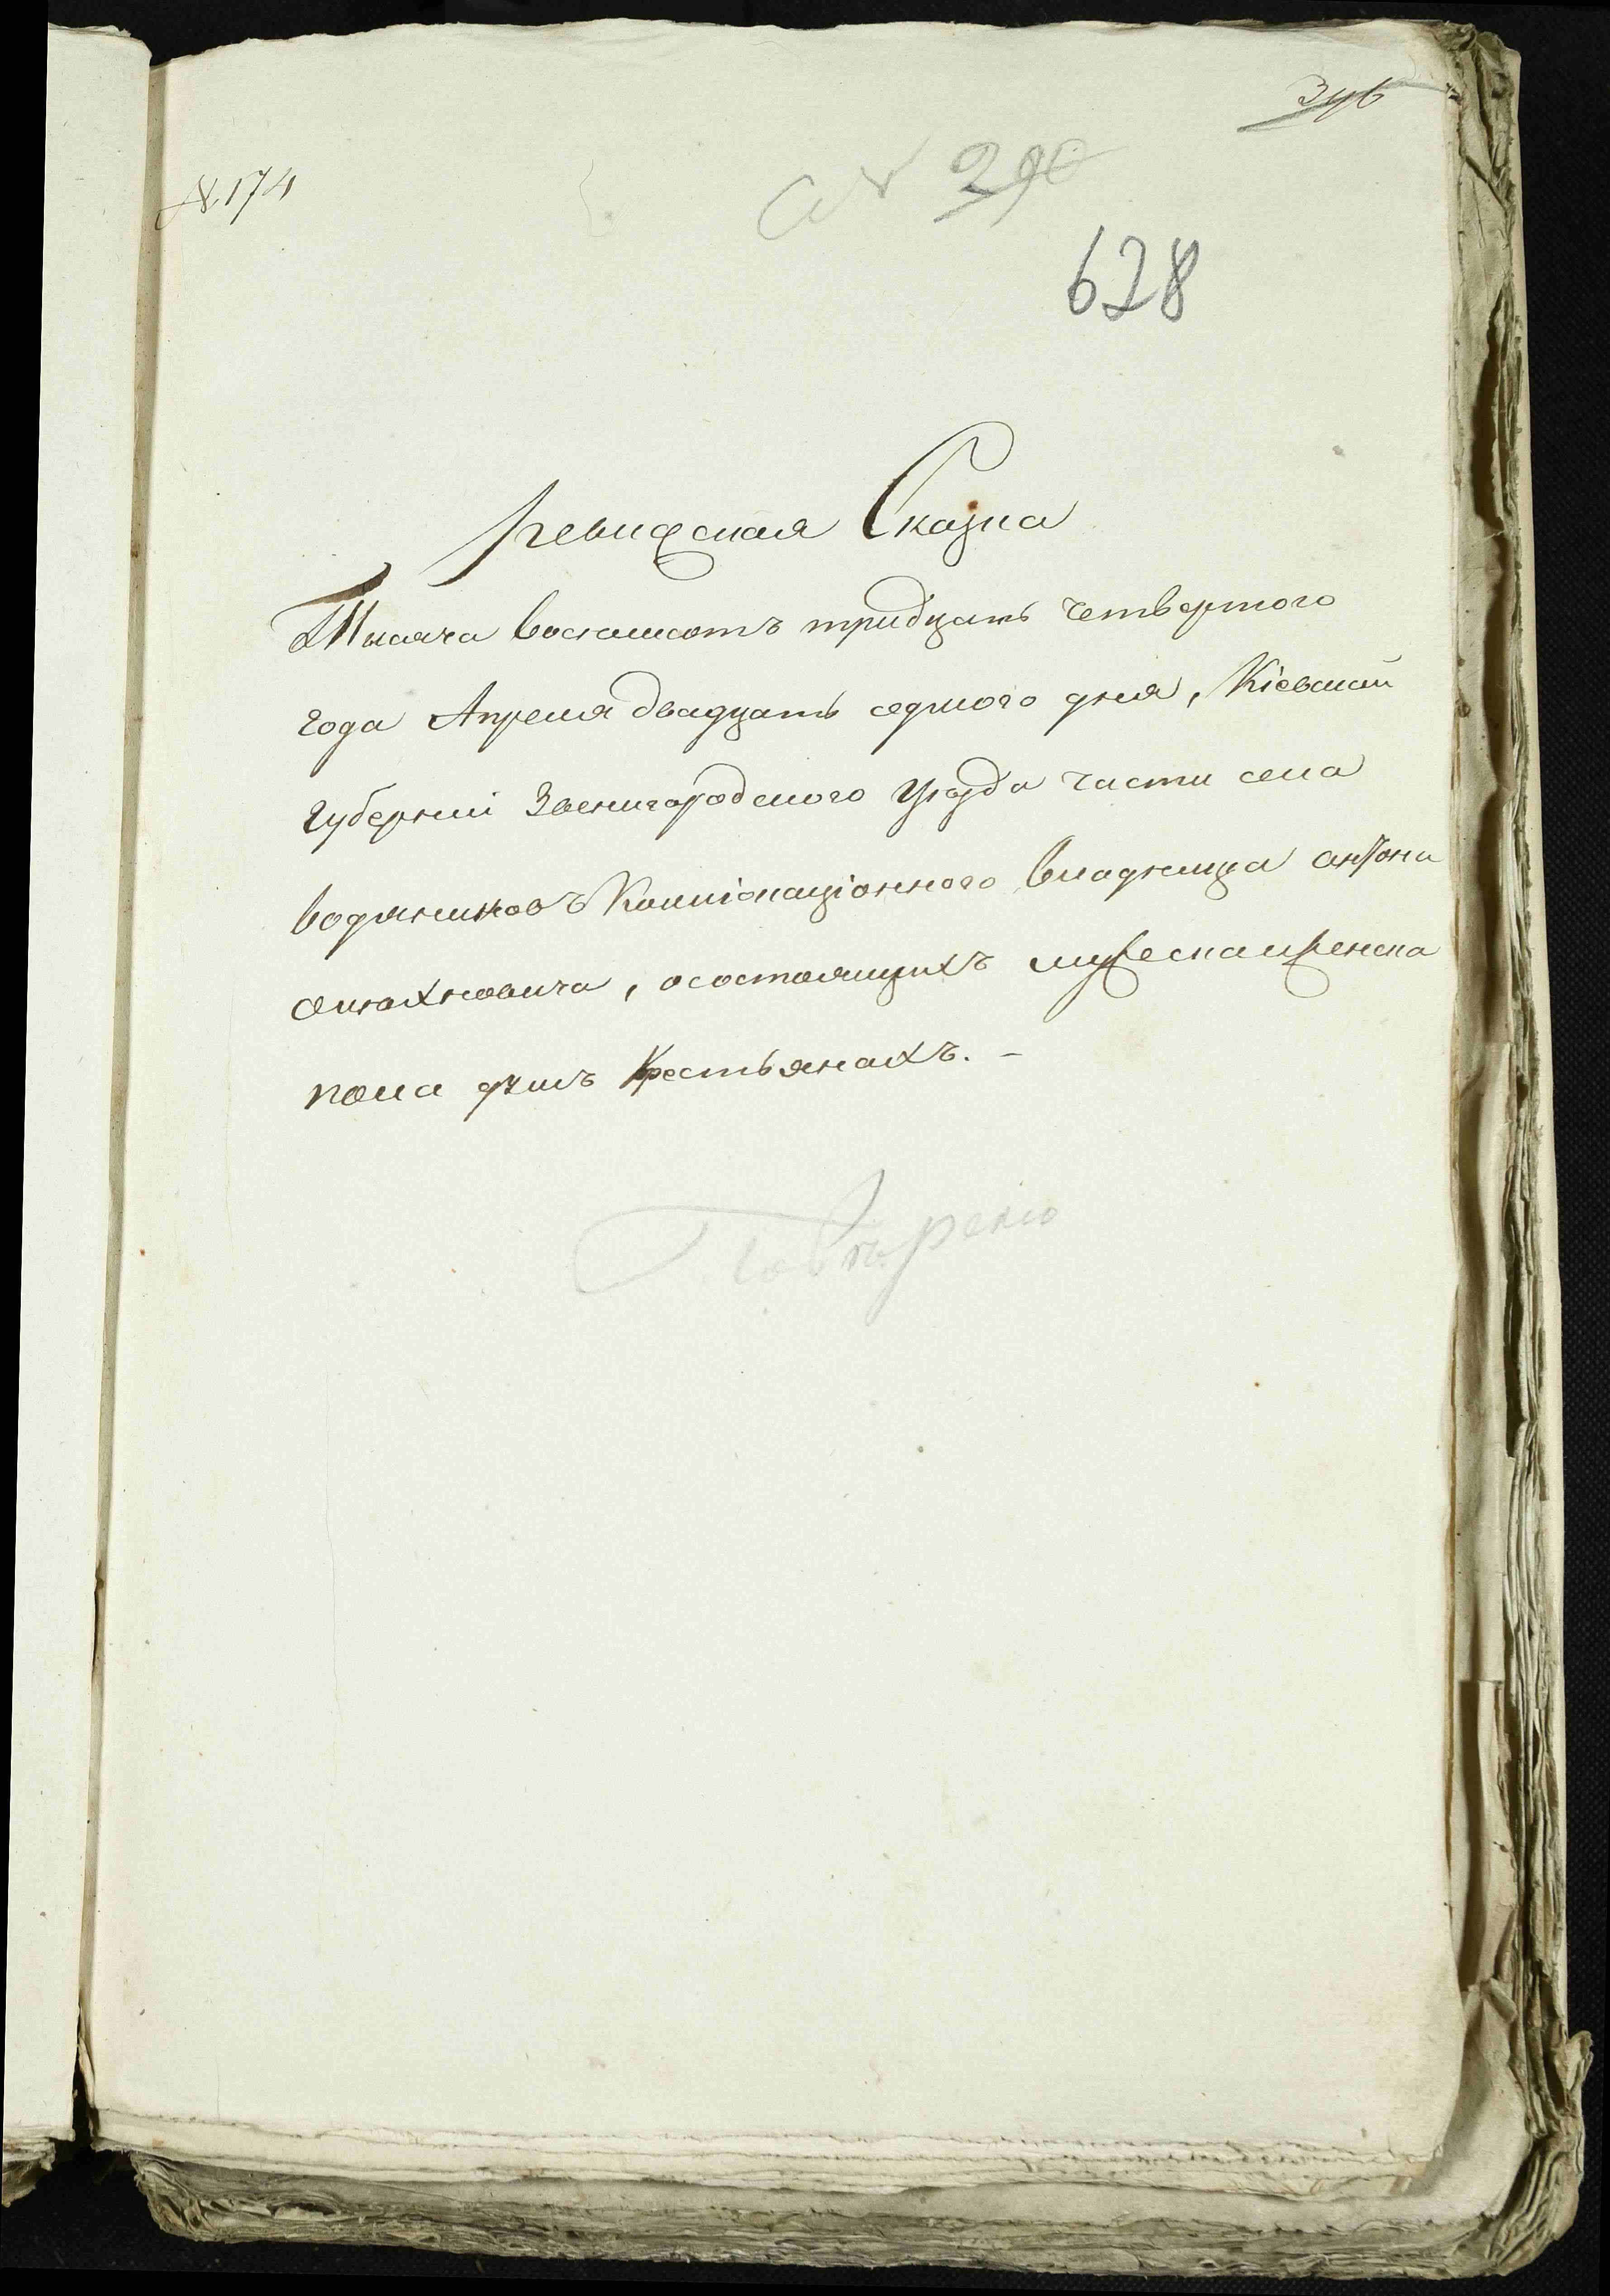 346
№ 174
290
628
Ревизская Сказка
Тысяча восемсотъ тридцать четвертого
года Апреля двадцать седмого дня, Кіевской
губерніи Звенигородского уезда части села
водяниковъ Коллокаціонного владелца антона
осостоящихъ мужеска иженска
пола душъ Крестьянахъ. –